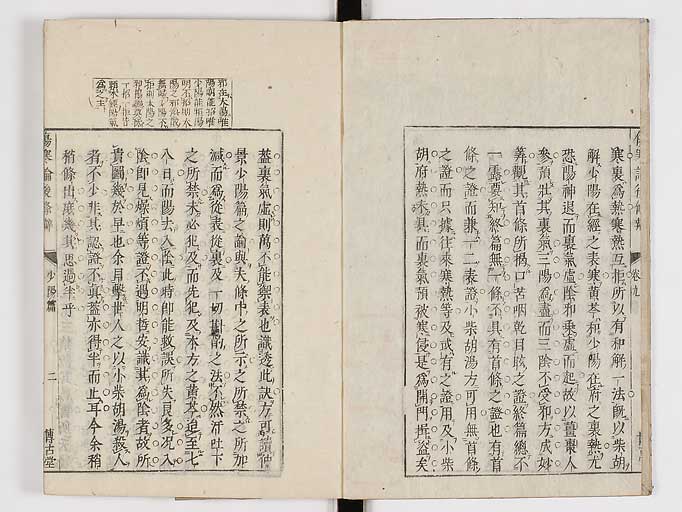 卷九
寒裏爲熱寒熱互拒所以有和解一法旣以柴胡
解少陽在經之表寒黃芩和少陽在府之裏熱尤
恐陽神退而裏氣虛陰和乘虛而起故以薑棗人
參預壯其裏氣三陽爲盡而三陰不受邪方成妙
算觀其首條所揭口苦咽乾目眩之證終篇總不
一露要知終篇無一條不具有首條之證也有首
條之證而兼一二表證小柴胡湯方可用無首條
之證而只據往來寒熱等及或有之證用及小柴
胡府熱未具而裏氣預被寒侵是爲開門揖盜矣
蓋裏氣虛則萬不能禦表也識透此訣方可讀仲
景少陽篇之論與夫條中之所示之所禁之所加
減而爲從表從裏及一切斟酌之法不然汗吐下
之所禁未必犯及而先犯及本方之黃芩追至七
八日而陽去入陰此時卽能救誤所失良多况入
陰卽見煩躁等證不過明哲安識其爲陰者故所
貴圖幾於早也余目擊世人之以小柴胡湯殺人
者不少非其認證不真蓋亦得半而止耳今余稍
稍條出庶幾其思過半乎
傷寒論後條辨 少陽篇 二 博古堂
邪在太陽惟